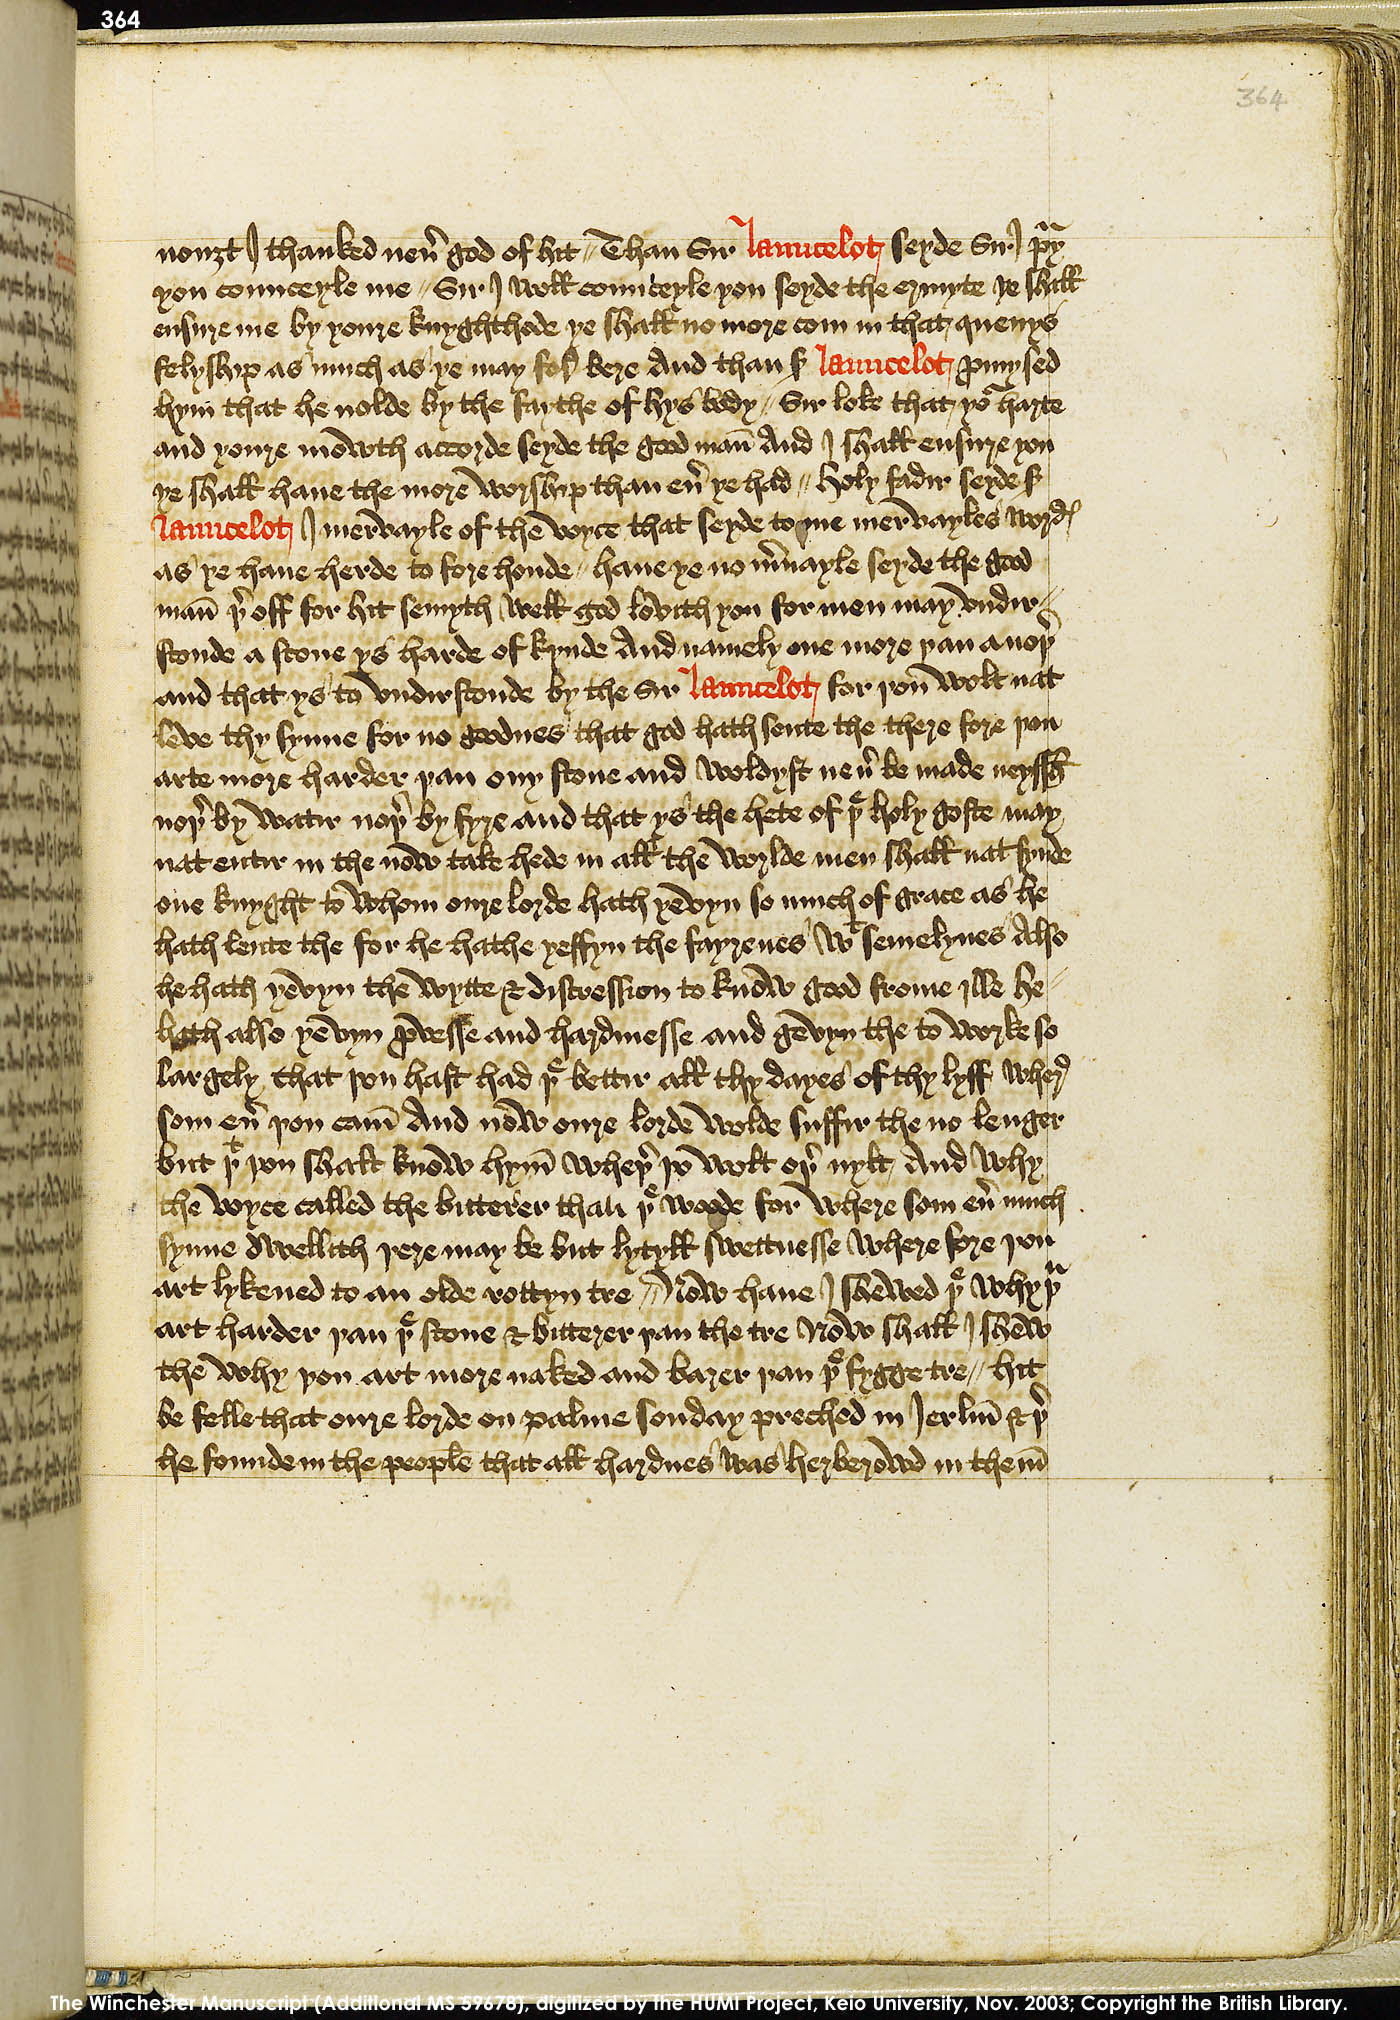 364
364
nouȝt I thanked neũ god of hit // Than Sir Launcelot seyde Sir I p̃y
you counceyle me // Sir I woll counceyle you seyde the ermyte ye shall
ensure me by youre knyghthode ye shall no more com in that quenys
felyship as much as ye may for bere And than S̉ Launcelot p̱mysed
hym that he nolde by the faythe of hys body // Sir loke that yor̉ harte
and youre mowth accorde seyde the good man̄ And I shall ensure you
ye shall haue the more worship than eũ ye had // Holy fadir seyde S̉
Launcelot I mervayle of the voyce that seyde to me mervayles wordꝭ
as ye haue herde to fore honde // haue ye no m̃vayle seyde the good
man̄ þ̉ off for hit semyth well god lovith you for men may vndir //
stonde a stone ys harde of kynde And namely one more þan anoþ̉
and that ys to vndirstonde by the Sir Launcelot for þou wolt nat
leve thy synne for no goodnes that god hath sente the there fore þou
arte more harder þan ony stone and woldyst neũ be made neyssh
noþ̉ by watir noþ̉ by fyre and that ys the hete of þe holy goste may
nat entir in the now take hede in all the worlde men shall nat fynde
one knyght to whom oure lorde hath yevyn so much of grace as he
hath lente the for he hathe yeffyn the fayrenes wt semelynes Also
he hath yevyn the wytte & discression to know good frome ille he //
hath also yevyn p̱wesse and hardinesse and gevyn the to worke so
largely that þou hast had þe bettir all thy dayes of thy lyff wher̉
som eũ þou cam̄ And now oure lorde wolde suffir the no lenger
but þt þou shalt know hym̄ wheþ̉ þu wolt oþ̉ nylt And why
the voyce called the bitterer than þe woode for where som eũ much
synne dwellith þere may be but lytyll swettnesse where fore þou
art lykened to an olde rottyn tre // Now haue I shewed þe why þu
art harder þan þe stone & bitterer þan the tre Now shall I shew
the why þou art more naked and barer þan þe fygge tre // hit
be felle that oure lorde on palme sonday preched in Jerlm̄ & þ̉
he founde in the people that all hardnes was herberowd in them̄
The Winchester Manuscript (Additional MS 59678), digitized by the HUMI Project, Keio University, Nov. 2003; Copyright the British Library.